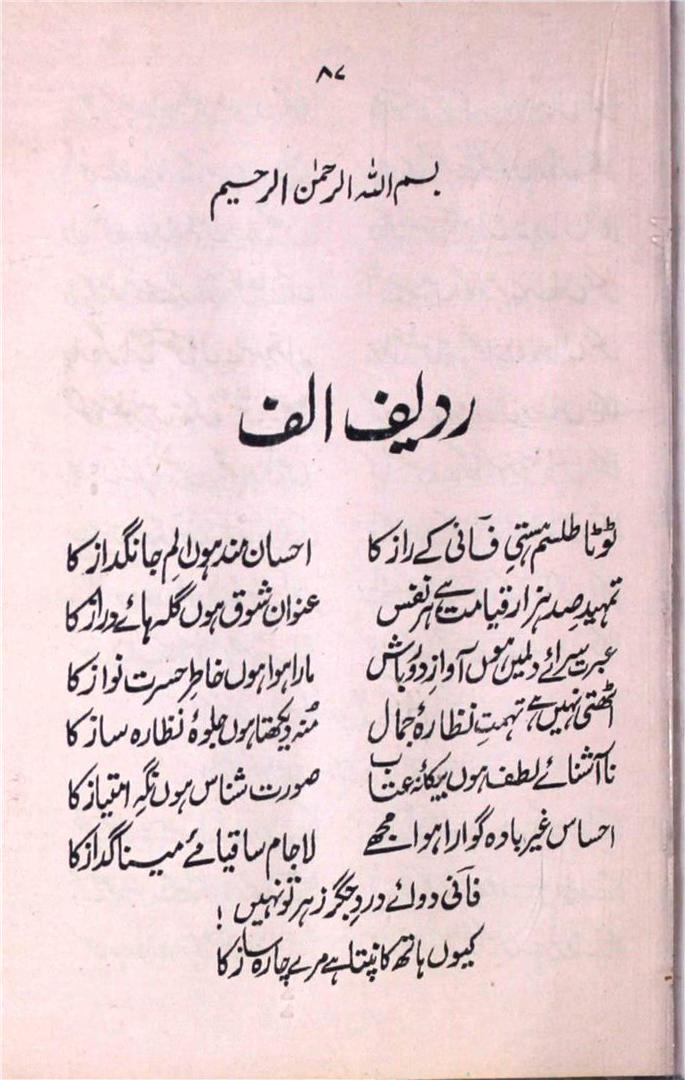 ۸۷
بسم اللہ الرحمٰن الرحیم
ردیف الف
ٹوٹا طلسم ہستیِ فانی کے راز کا احسان مند ہوں المِ جانگداز کا
تمہیدِ صد ہزار قیامت ہے ہر نفس عنوانِ شوق ہوں گلہائے دراز کا
عبرت سرائے دلمیں ہوں آوازِ دورباش مارا ہوا ہوں خاطرِ حسرت نواز کا
اٹھتی نہیں ہے تہمتِ نظارۂ جمال مُنہ دیکھتا ہوں جلوۂ نظارہ ساز کا
نا آشنائے لطف ہوں بیگانۂ عتاب صورت شناس ہوں نگہِ امتیاز کا
احساس غیر بادہ گوارا ہوا مجھے لا جام ساقیا مئے مینا گداز کا
فانی دوائے دردِ جگر زہر تو نہیں !
کیوں ہاتھ کانپتا ہے مرے چارہ ساز کا